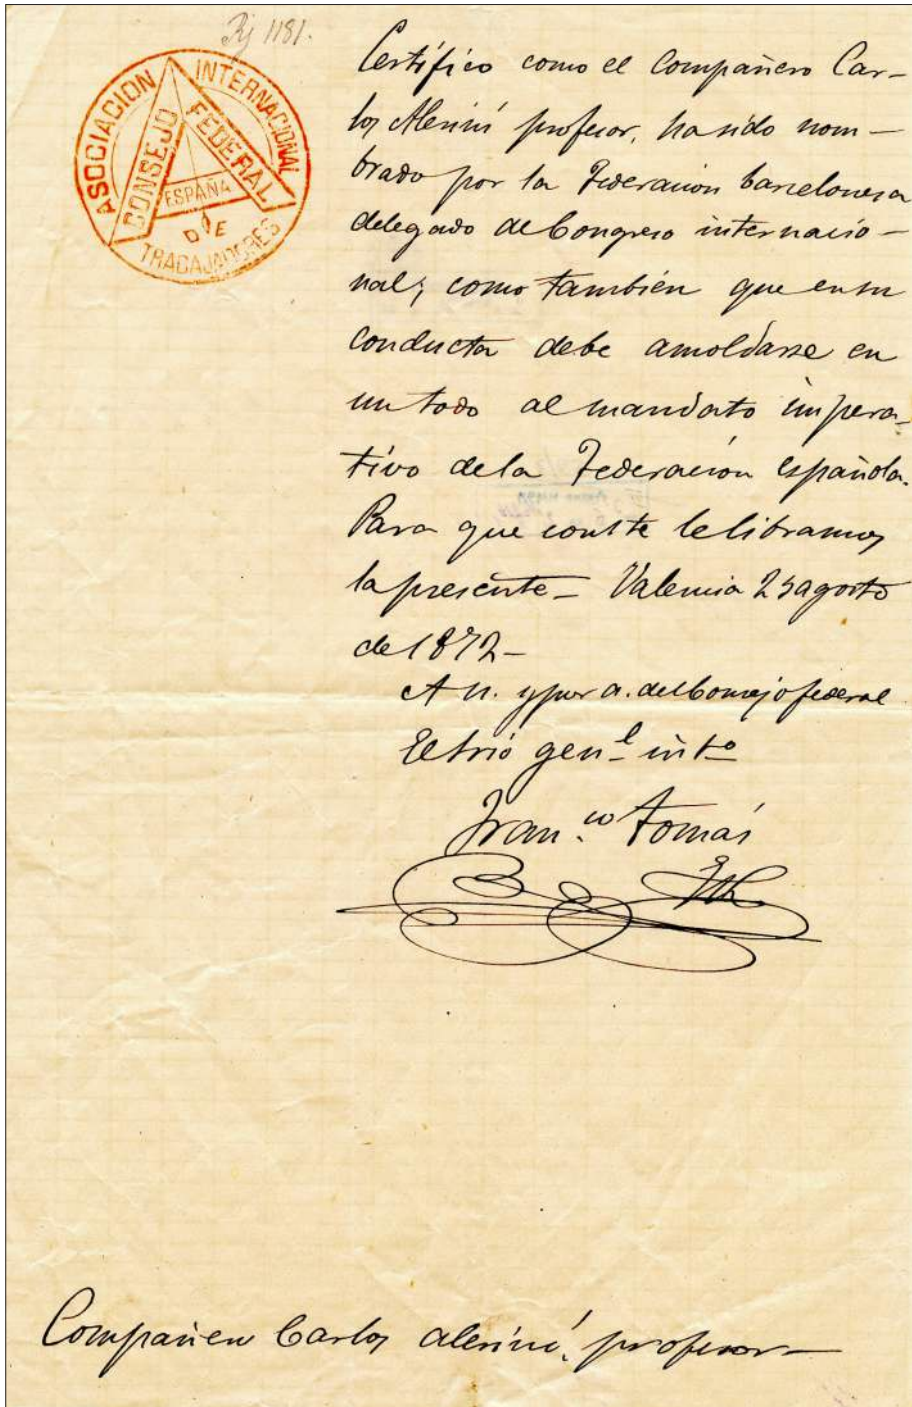 Rj 1181.
ASOCIACION INTERNACIONAL
DE
TRABAJADORES
CONSEJO FEDERAL
ESPAÑA
Certífico como el Compañero Car-
los Alerini profesor, ha sido nom-
brado por la Federacion barcelonesa
delegado al Congreso internacio-
nal; como también que en su
conducta debe amoldarse en
un todo al mandato impera-
tívo de la Federación española.
Para que conste le libramos
la presente_ Valencia 23 agosto
de 1872-
A n. y por a. del Consejo federal
El Srio genl intº
Franco Tomás
Compañero Carlos Alerini, profesor-